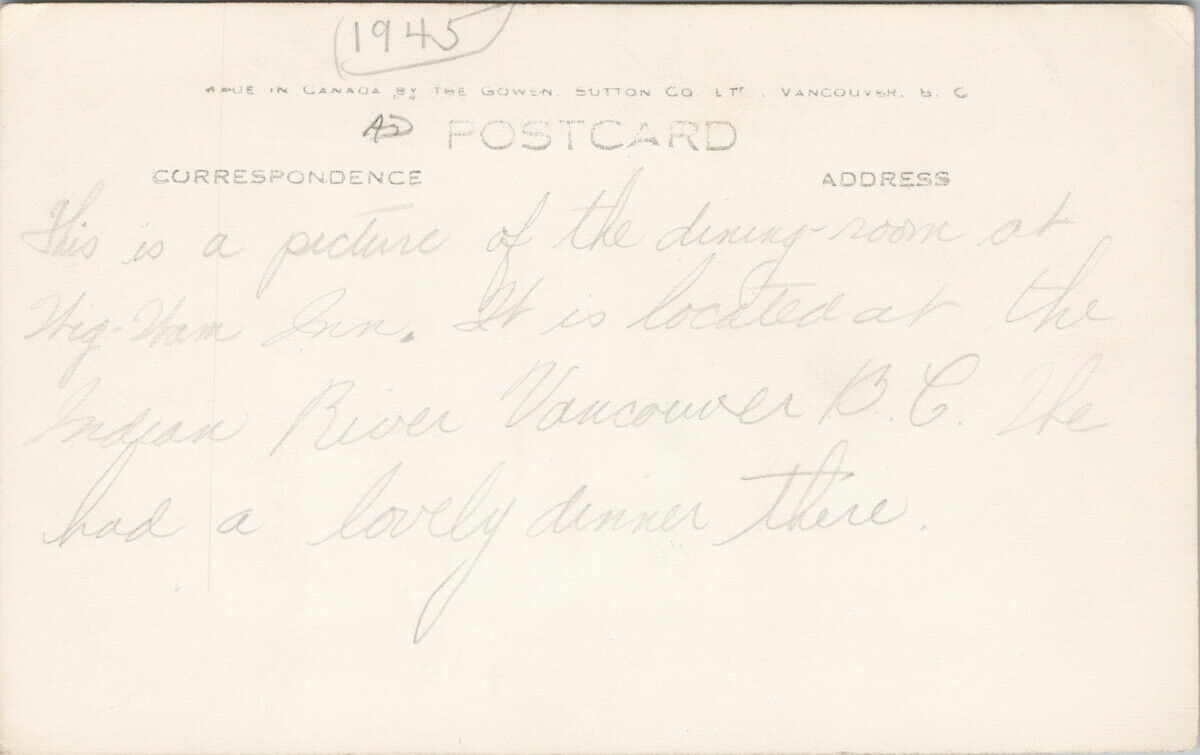 1945
MADE IN CANADA BY THE GOWEN, SUTTON CO. LTD., VANCOUVER, B. C.
POSTCARD
CORRESPONDENCE ADDRESS
This is a picture of the dining-room at
Wig-Wam Inn. It is located at the
Indian River Vancouver B.C. We
had a lovely dinner there.